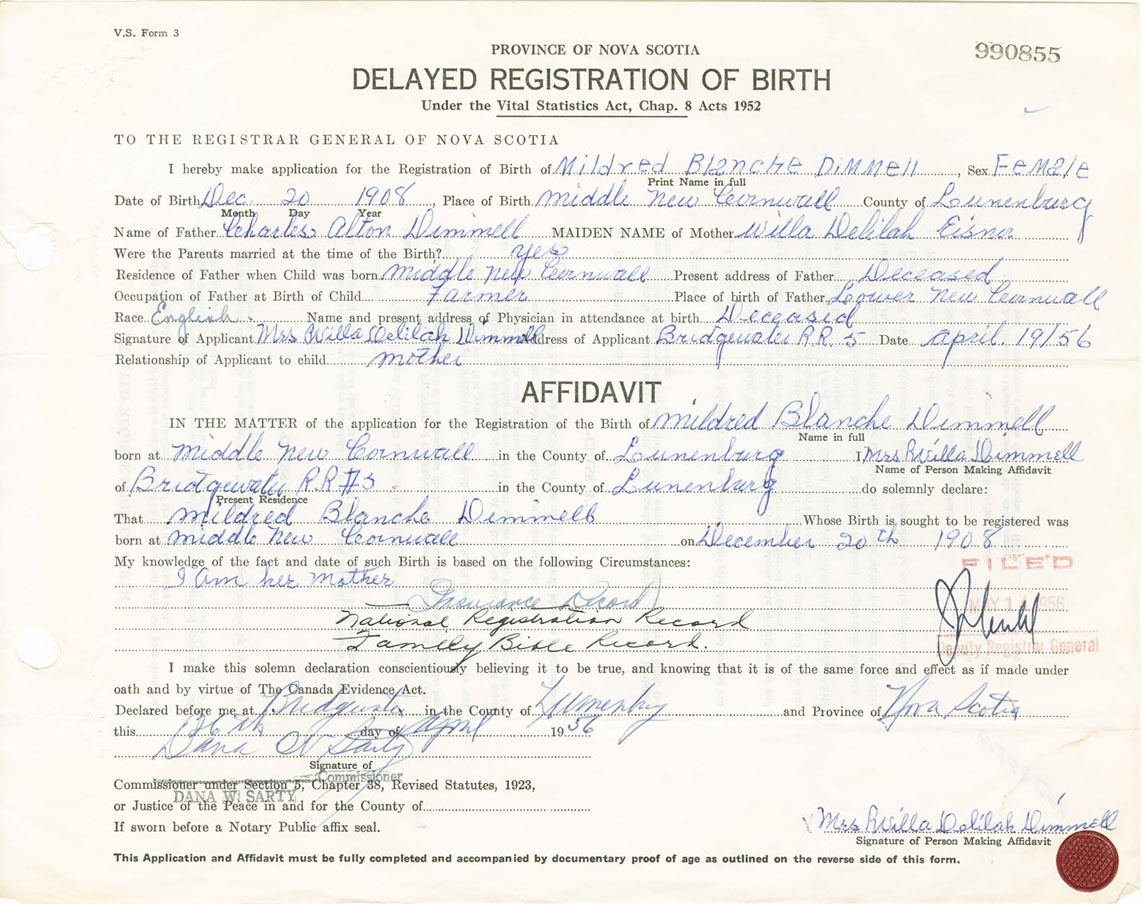 V.S. Form 3
PROVINCE OF NOVA SCOTIA
990855
DELAYED REGISTRATION OF BIRTH
Under the Vital Statistics Act, Chap. 8 Acts 1952
TO THE REGISTRAR GENERAL OF NOVA SCOTIA
I hereby make application for the Registration of Birth of Mildred Blanche Dimmell, Sex Female
Print Name in full
Date of Birth Dec. 20 1908, Place of Birth Middle New Cornwall County of Lunenburg
Month Day Year
Name of Father Charles Alton Dimmell MAIDEN NAME of Mother Willa Delilah Eisnor
Were the Parents married at the time of the Birth? yes
Residence of Father when Child was born Middle New Cornwall Present address of Father Deceased
Occupation of Father at Birth of Child Farmer Place of birth of Father Lower New Cornwall
Race English Name and present address of Physician in attendance at birth Deceased
Signature of Applicant Mrs Willa Delilah Dimmell Address of Applicant Bridgewater R.R. 5 Date April. 19/56
Relationship of Applicant to child mother
AFFIDAVIT
IN THE MATTER of the application for the Registration of the Birth of Mildred Blanche Dimmell
Name in full
born at Middle New Cornwall in the County of Lunenburg I Mrs Willa Dimmell
Name of Person Making Affidavit
of Bridgewater R.R. in the County of Lunenburg do solemnly declare:
Present Residence
That Mildred Blanche Dimmell Whose Birth is sought to be registered was
born at Middle New Cornwall on December 20th 1908
My knowledge of the fact and date of such Birth is based on the following Circumstances:
FILED
I Am her Mother
Insurance Record
1956
National Registration Record
Family Bible Record.
Deputy Registrar General
I make this solemn declaration conscientiously believing it to be true, and knowing that it is of the same force and effect as if made under
oath and by virtue of The Canada Evidence Act.
Declared before me at Bridgewater in the County of Lunenburg and Province of Nova Scotia
this day of April 1956
Dana W Sarty
Signature of
Commissioner
Commissioner under Section 5, Chapter 38, Revised Statutes, 1923,
DANA W. SARTY
or Justice of the Peace in and for the County of
If sworn before a Notary Public affix seal.
Mrs Willa Delilah Dimmell
Signature of Person Making Affidavit
This Application and Affidavit must be fully completed and accompanied by documentary proof of age as outlined on the reverse side of this form.